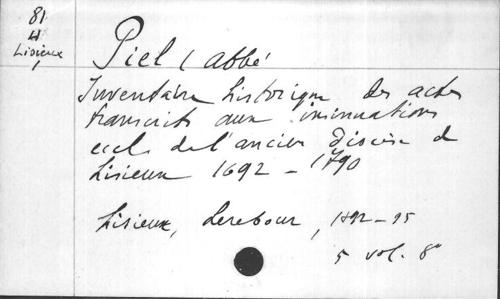 81
H
Lisieux
1
Piel (abbé
Inventaire historique des actes
transcrits aux insinuations
eccl. de l'ancien diocèse de
Lisieux 1692 – 1790
Lisieux, Lerebour, 1892–95
5 vol. 8°